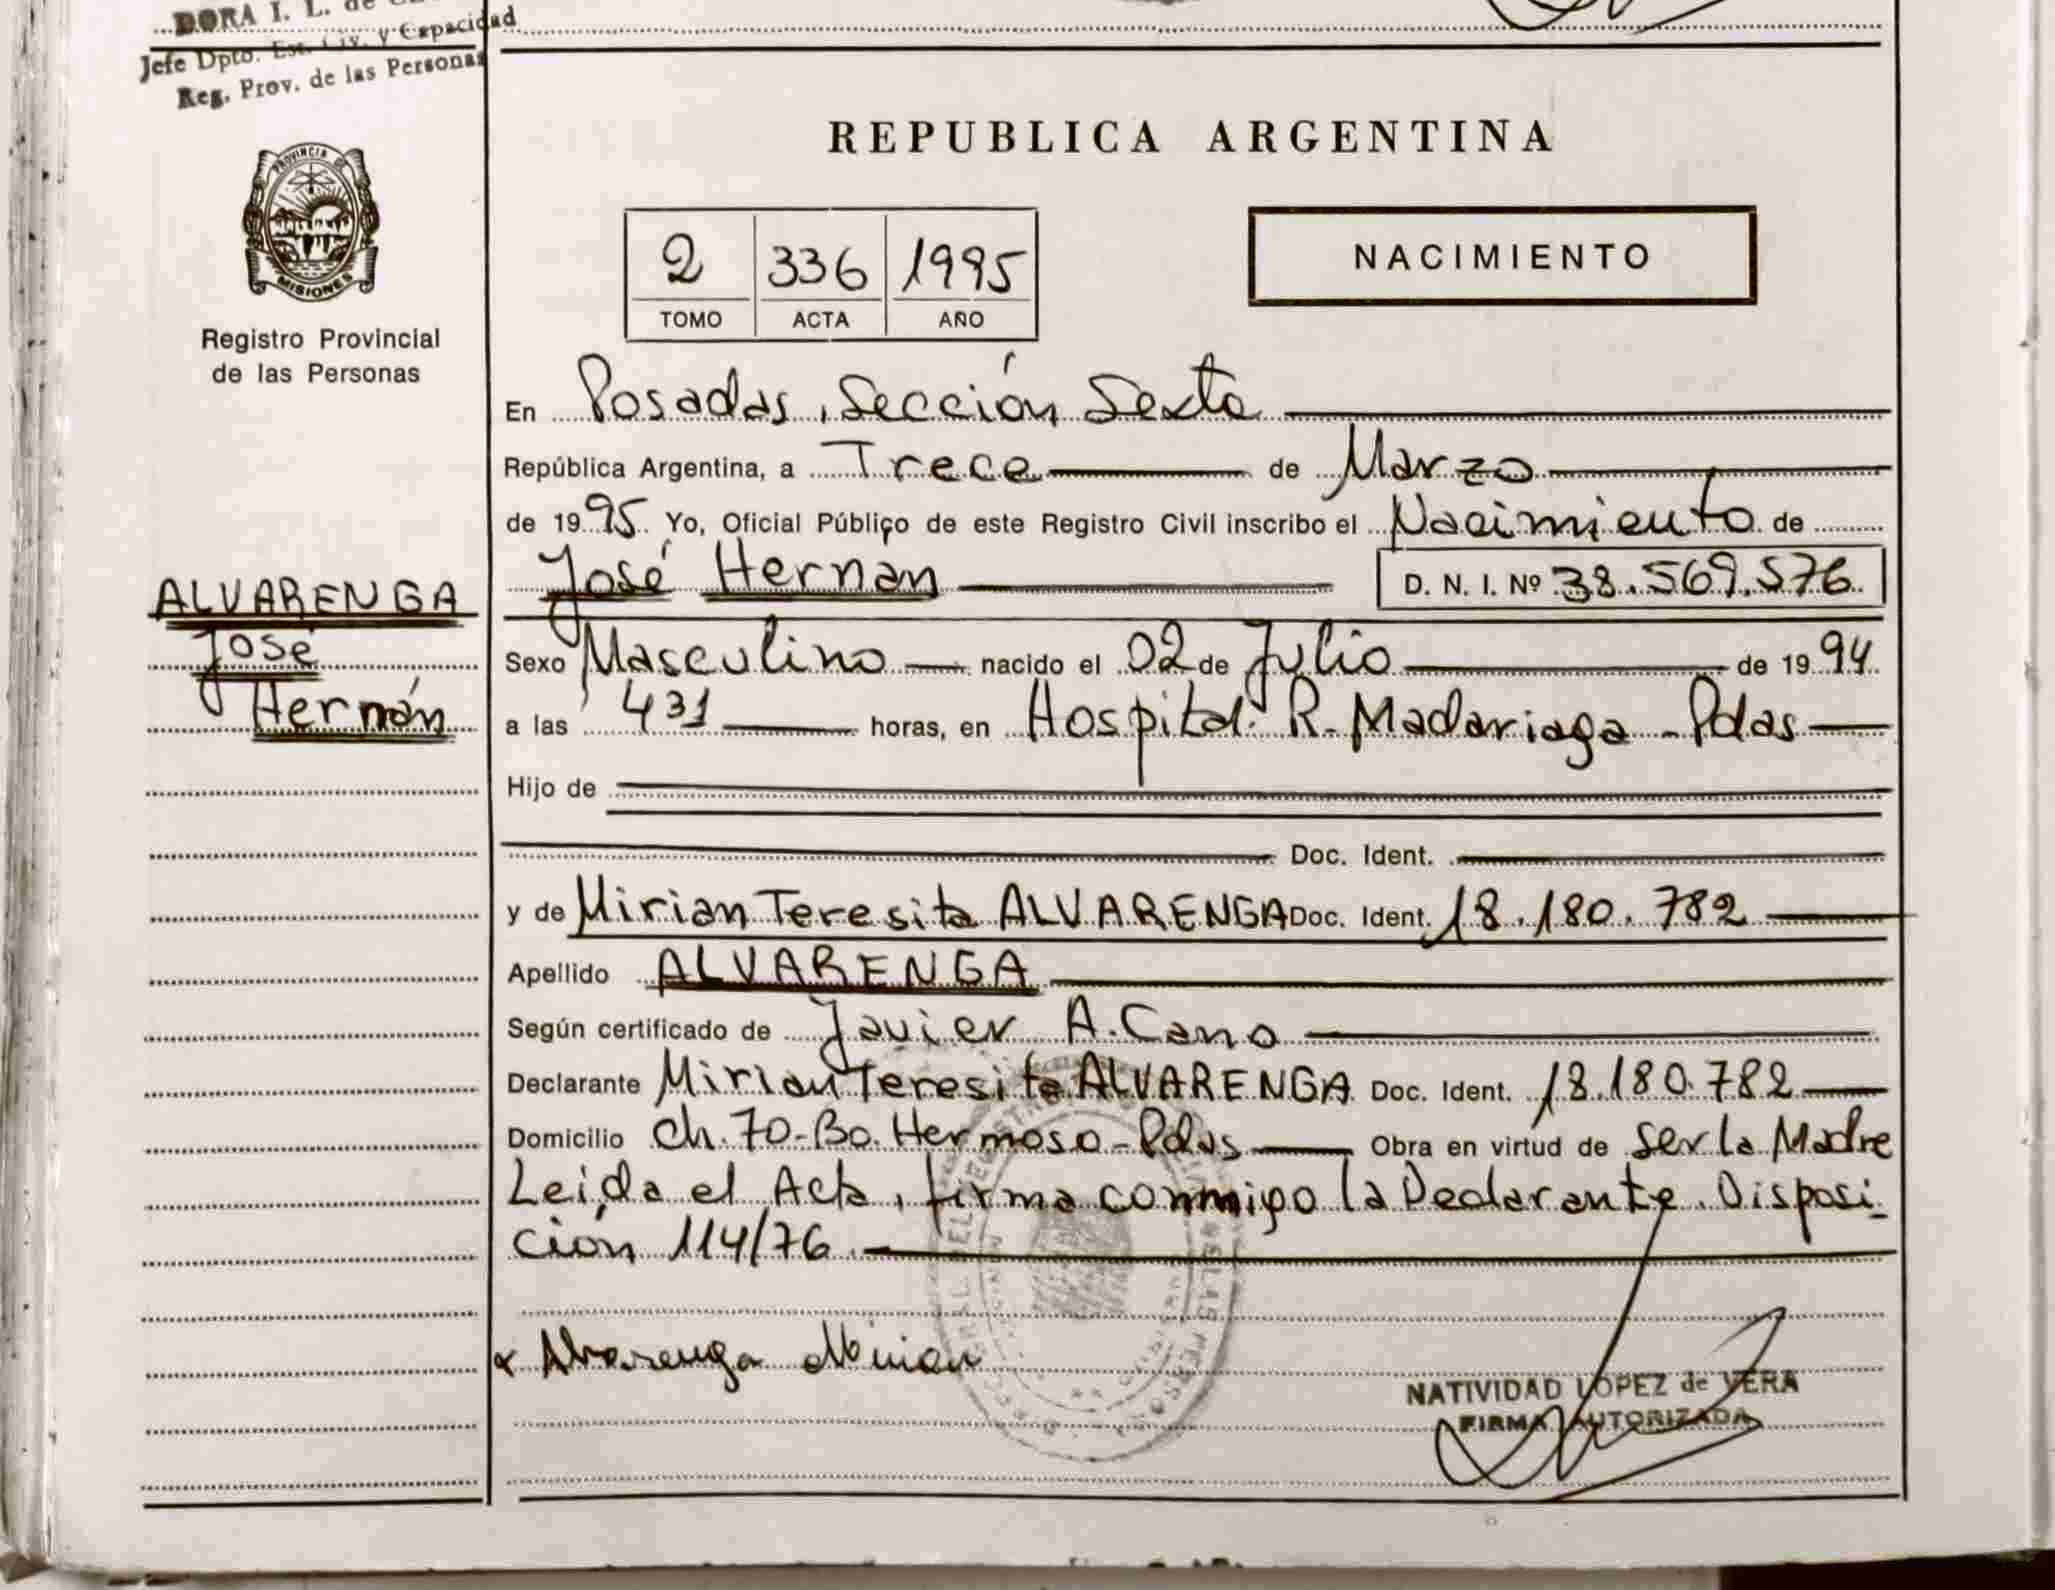 DORA I. L. de
Jefe Dpto. Est. Civ. y Capacidad
Reg. Prov. de las Personas
PROVINCIA DE
MISIONES
Registro Provincial
de las Personas
ALVARENGA
José
Hernán
REPUBLICA ARGENTINA
2 336 1995
TOMO ACTA AÑO
NACIMIENTO
En Posadas, Sección Sexta
República Argentina, a Trece de Marzo
de 1995 Yo, Oficial Público de este Registro Civil inscribo el Nacimiento de
José Hernan D. N. I. Nº 38.569.576.
Sexo Masculino nacido el 02 de Julio de 1994
a las 431 horas, en Hospital R. Madariaga - Pdas
Hijo de
Doc. Ident.
y de Mirian Teresita ALVARENGA Doc. Ident. 18.180.782
Apellido ALVARENGA
Según certificado de Javier A. Cano
Declarante Mirian Teresita ALVARENGA Doc. Ident. 18.180.782
Domicilio Ch. 70-Bo. Hermoso-Pdas Obra en virtud de Ser la Madre
Leida el Acta, firma conmigo la Declarante. Disposi-
ción 114/76
Alvarenga Mirian
NATIVIDAD LOPEZ de VERA
FIRMA AUTORIZADA